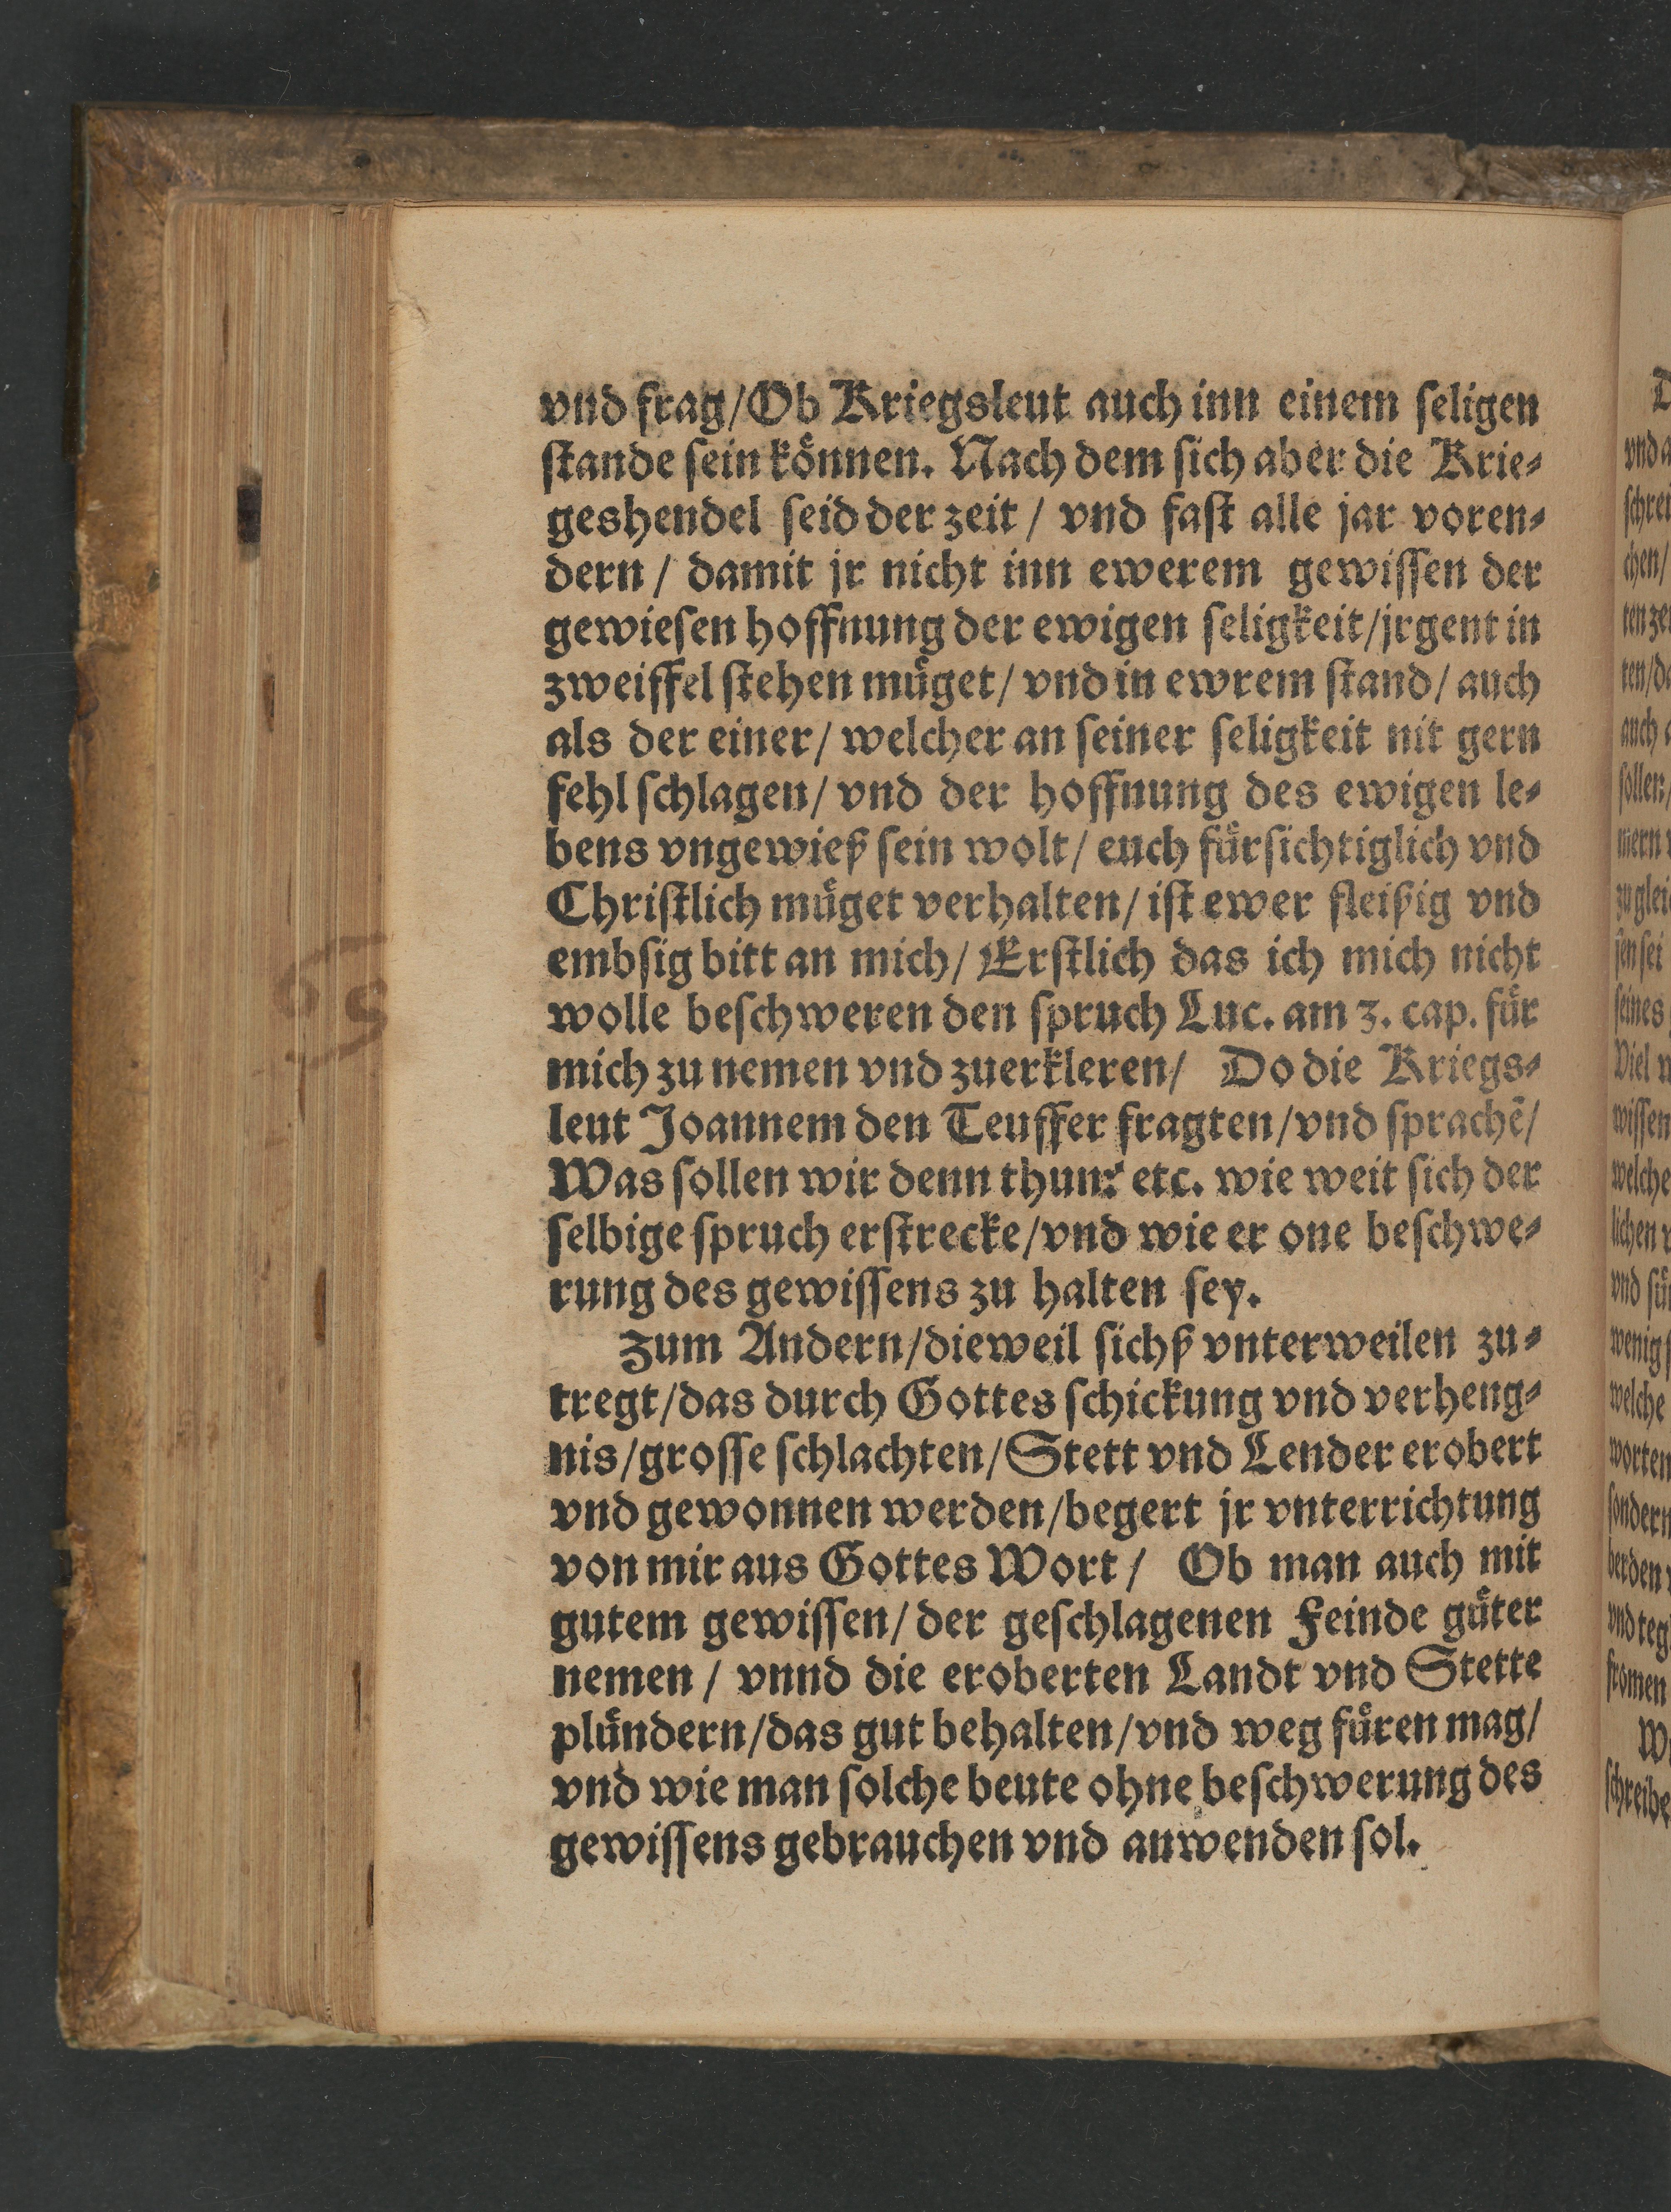 vnd frag/Ob Kriegsleut auch inn einem ſeligen
ſtande ſein koͤnnen. Nach dem ſich aber die Krie⸗
geshendel ſeid der zeit / vnd faſt alle jar voren⸗
dern / damit jr nicht inn ewerem gewiſſen der
gewieſen hoffnung der ewigen ſeligkeit/jrgent in
zweiffel ſtehen muͤget/ vnd in ewrem ſtand/ auch
als der einer/ welcher an ſeiner ſeligkeit nit gern
fehl ſchlagen/ vnd der hoffnung des ewigen le⸗
bens vngewieß ſein wolt/ euch fuͤrſichtiglich vnd
Chriſtlich muͤget verhalten/ iſt ewer fleißig vnd
embſig bitt an mich/ Erſtlich das ich mich nicht
wolle beſchweren den ſpruch Luc. am 3. cap. fuͤr
mich zu nemen vnd zuerkleren/ Do die Kriegs⸗
leut Joannem den Teuffer fragten/vnd ſprachẽ/
Was ſollen wir denn thun? etc. wie weit ſich der
ſelbige ſpruch erſtrecke/vnd wie er one beſchwe⸗
rung des gewiſſens zu halten ſey.
Zum Andern/dieweil ſichß vnterweilen zu⸗
tregt/das durch Gottes ſchickung vnd verheng⸗
nis/groſſe ſchlachten/Stett vnd Lender erobert
vnd gewonnen werden/begert jr vnterrichtung
von mir aus Gottes Wort/ Ob man auch mit
gutem gewiſſen/ der geſchlagenen Feinde guͤter
nemen / vnnd die eroberten Landt vnd Stette
pluͤndern/das gut behalten/vnd weg fuͤren mag/
vnd wie man ſolche beute ohne beſchwerung des
gewiſſens gebrauchen vnd anwenden ſol.